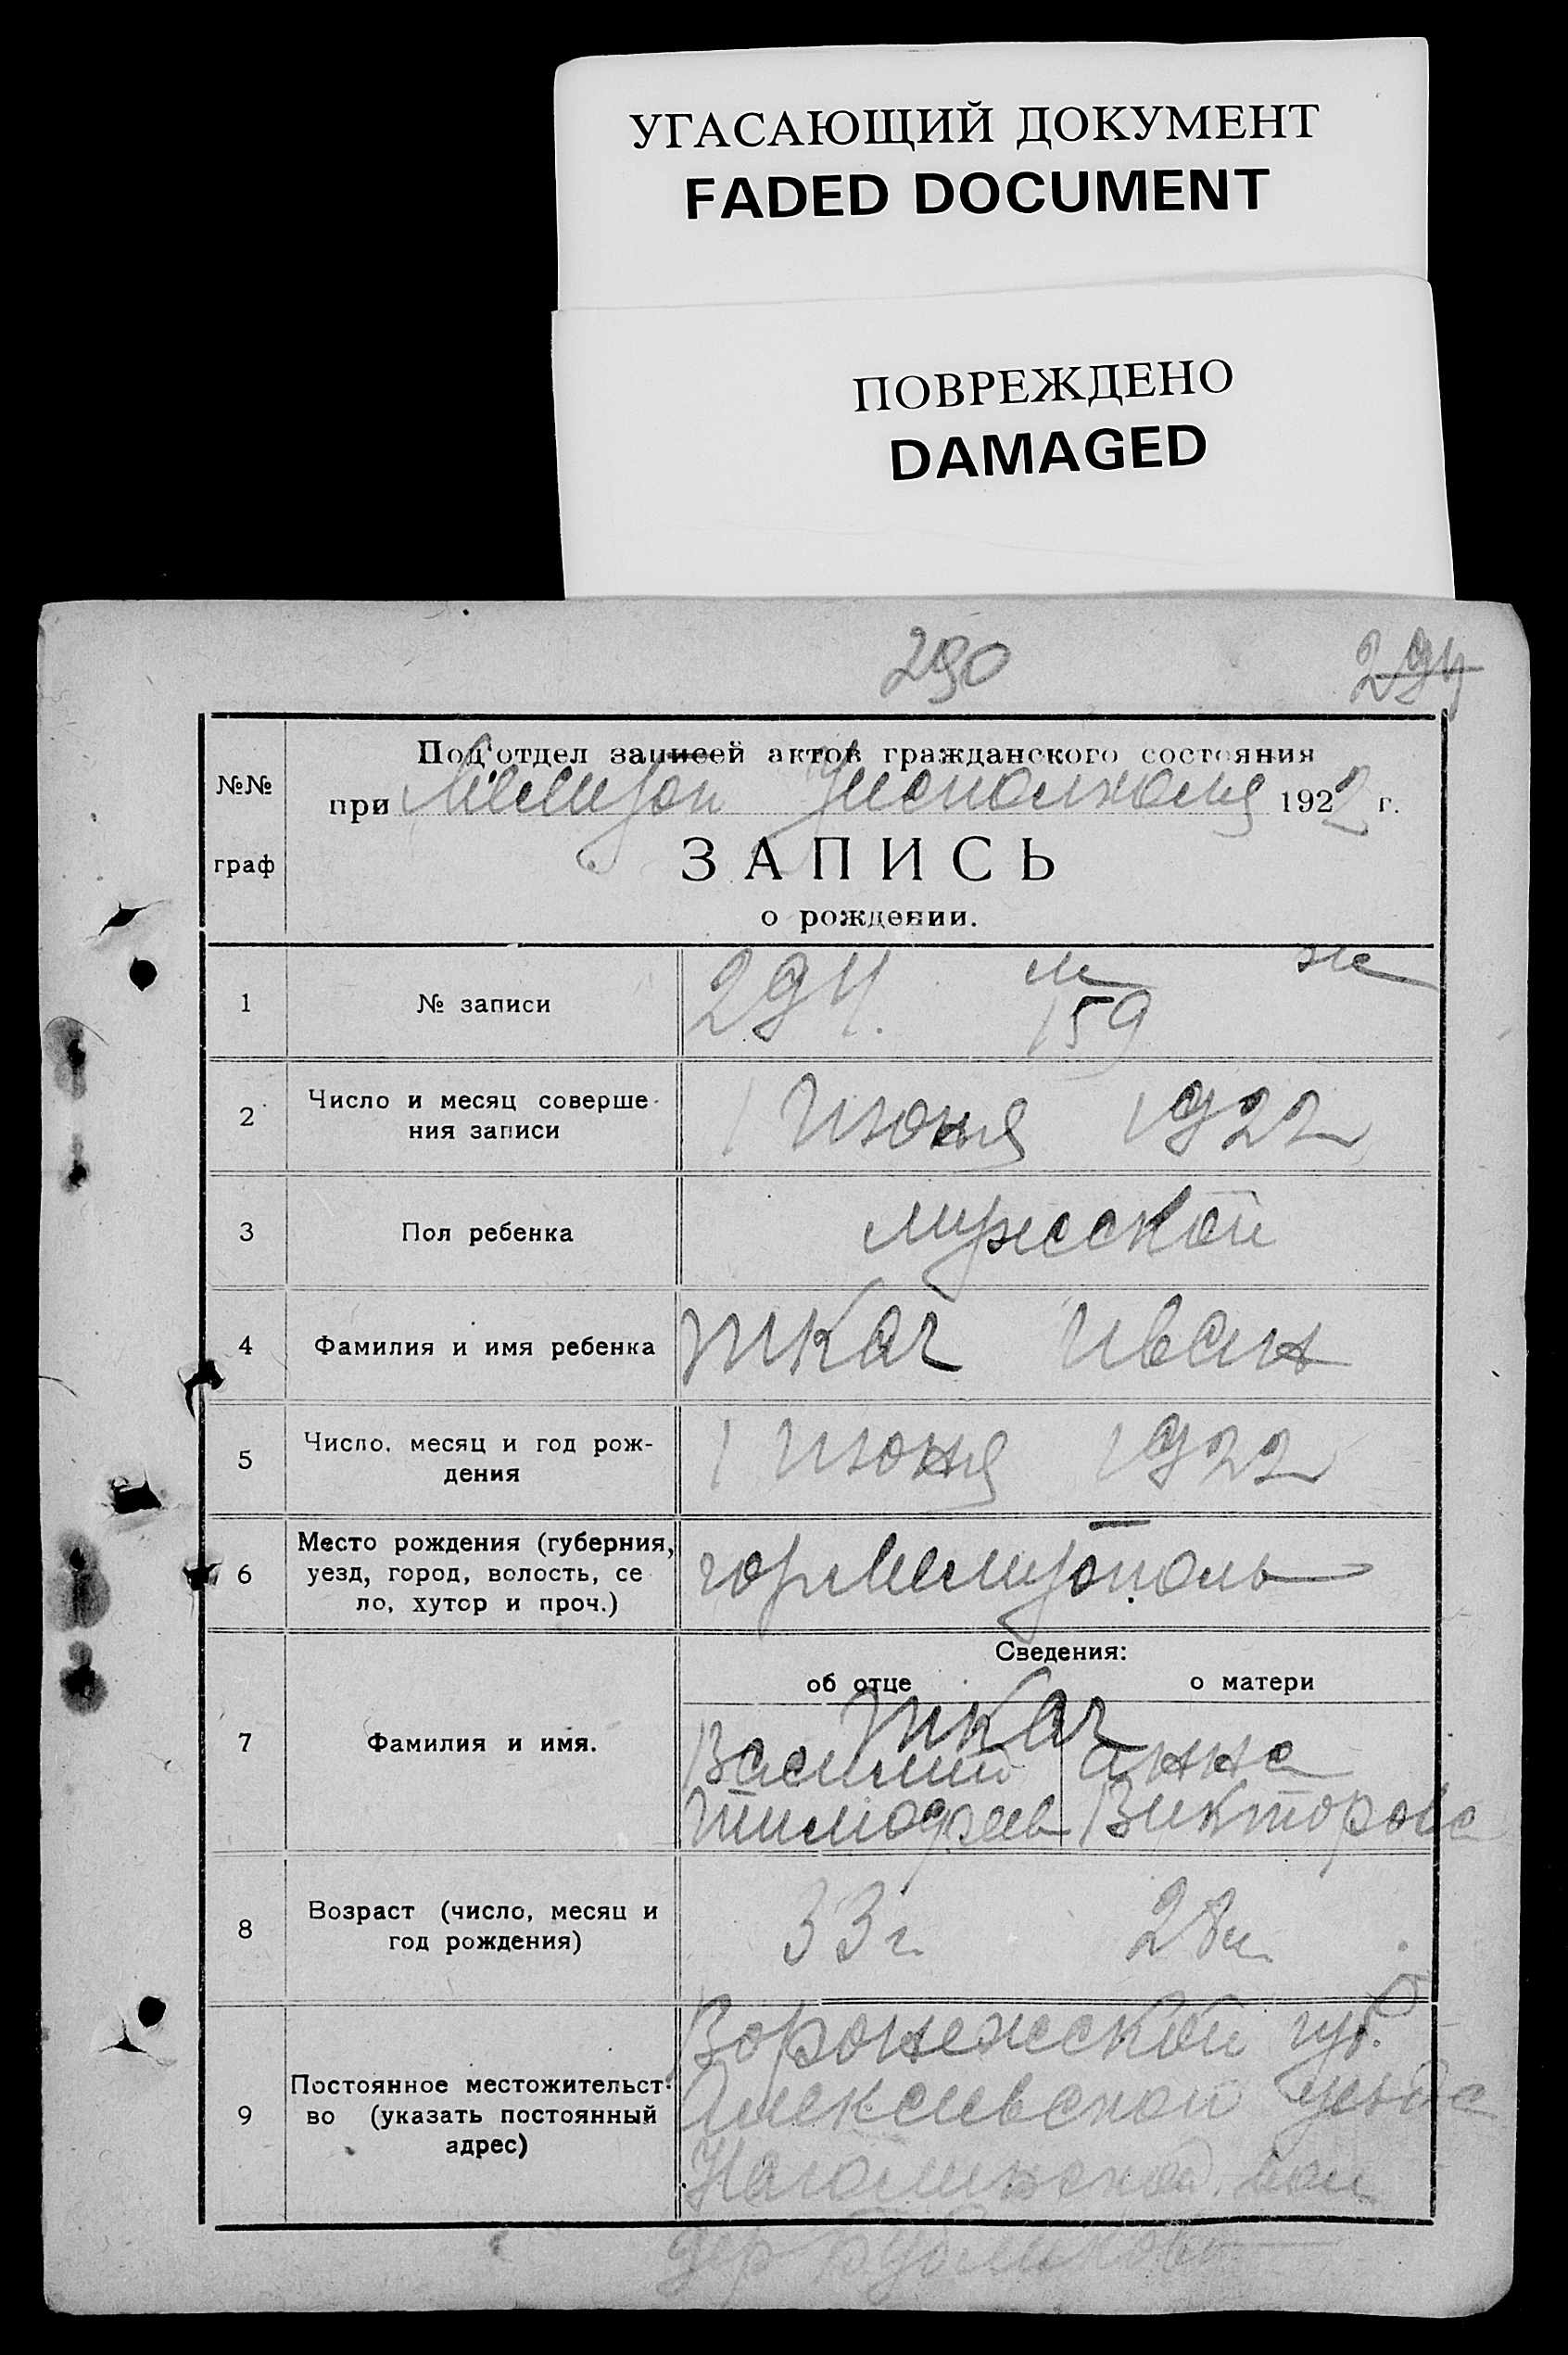 УГАСАЮЩИЙ ДОКУМЕНТ
FADED DOCUMENT
ПОВРЕЖДЕНО
DAMAGED
290 294
Под'отдел записей актов гражданского состояния
№№
при 1922 г.
граф
ЗАПИСЬ
о рождении.
1 № записи 294. м ж
159
2 Число и месяц соверше-
ния записи
1 Июня 1922
3 Пол ребенка мужской
4 Фамилия и имя ребенка Ткач Иван
5 Число, месяц и год рож-
дения
1 Июня 1922
6 Место рождения (губерния,
уезд, город, волость, се
ло, хутор и проч.)
гор Мелитополь
Сведения:
об отце о матери
7 Фамилия и имя. Ткач
Василий Анна
Тимофеев Викторова
8 Возраст (число, месяц и
год рождения)
33 г. 28 л.
9 Постоянное местожительст-
во (указать постоянный
адрес)
Воронежской губ.
уезда
вол
дер